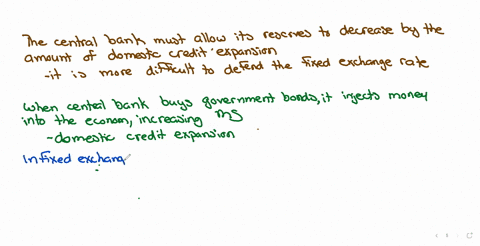 The central bank must allow its reserves to decrease by the
amount of domestic credit expansion
-it is more difficult to defend the fixed exchange rate
When central bank buys government bonds, it injects money
into the econom, increasing MS
-domestic credit expansion
In fixed exchang